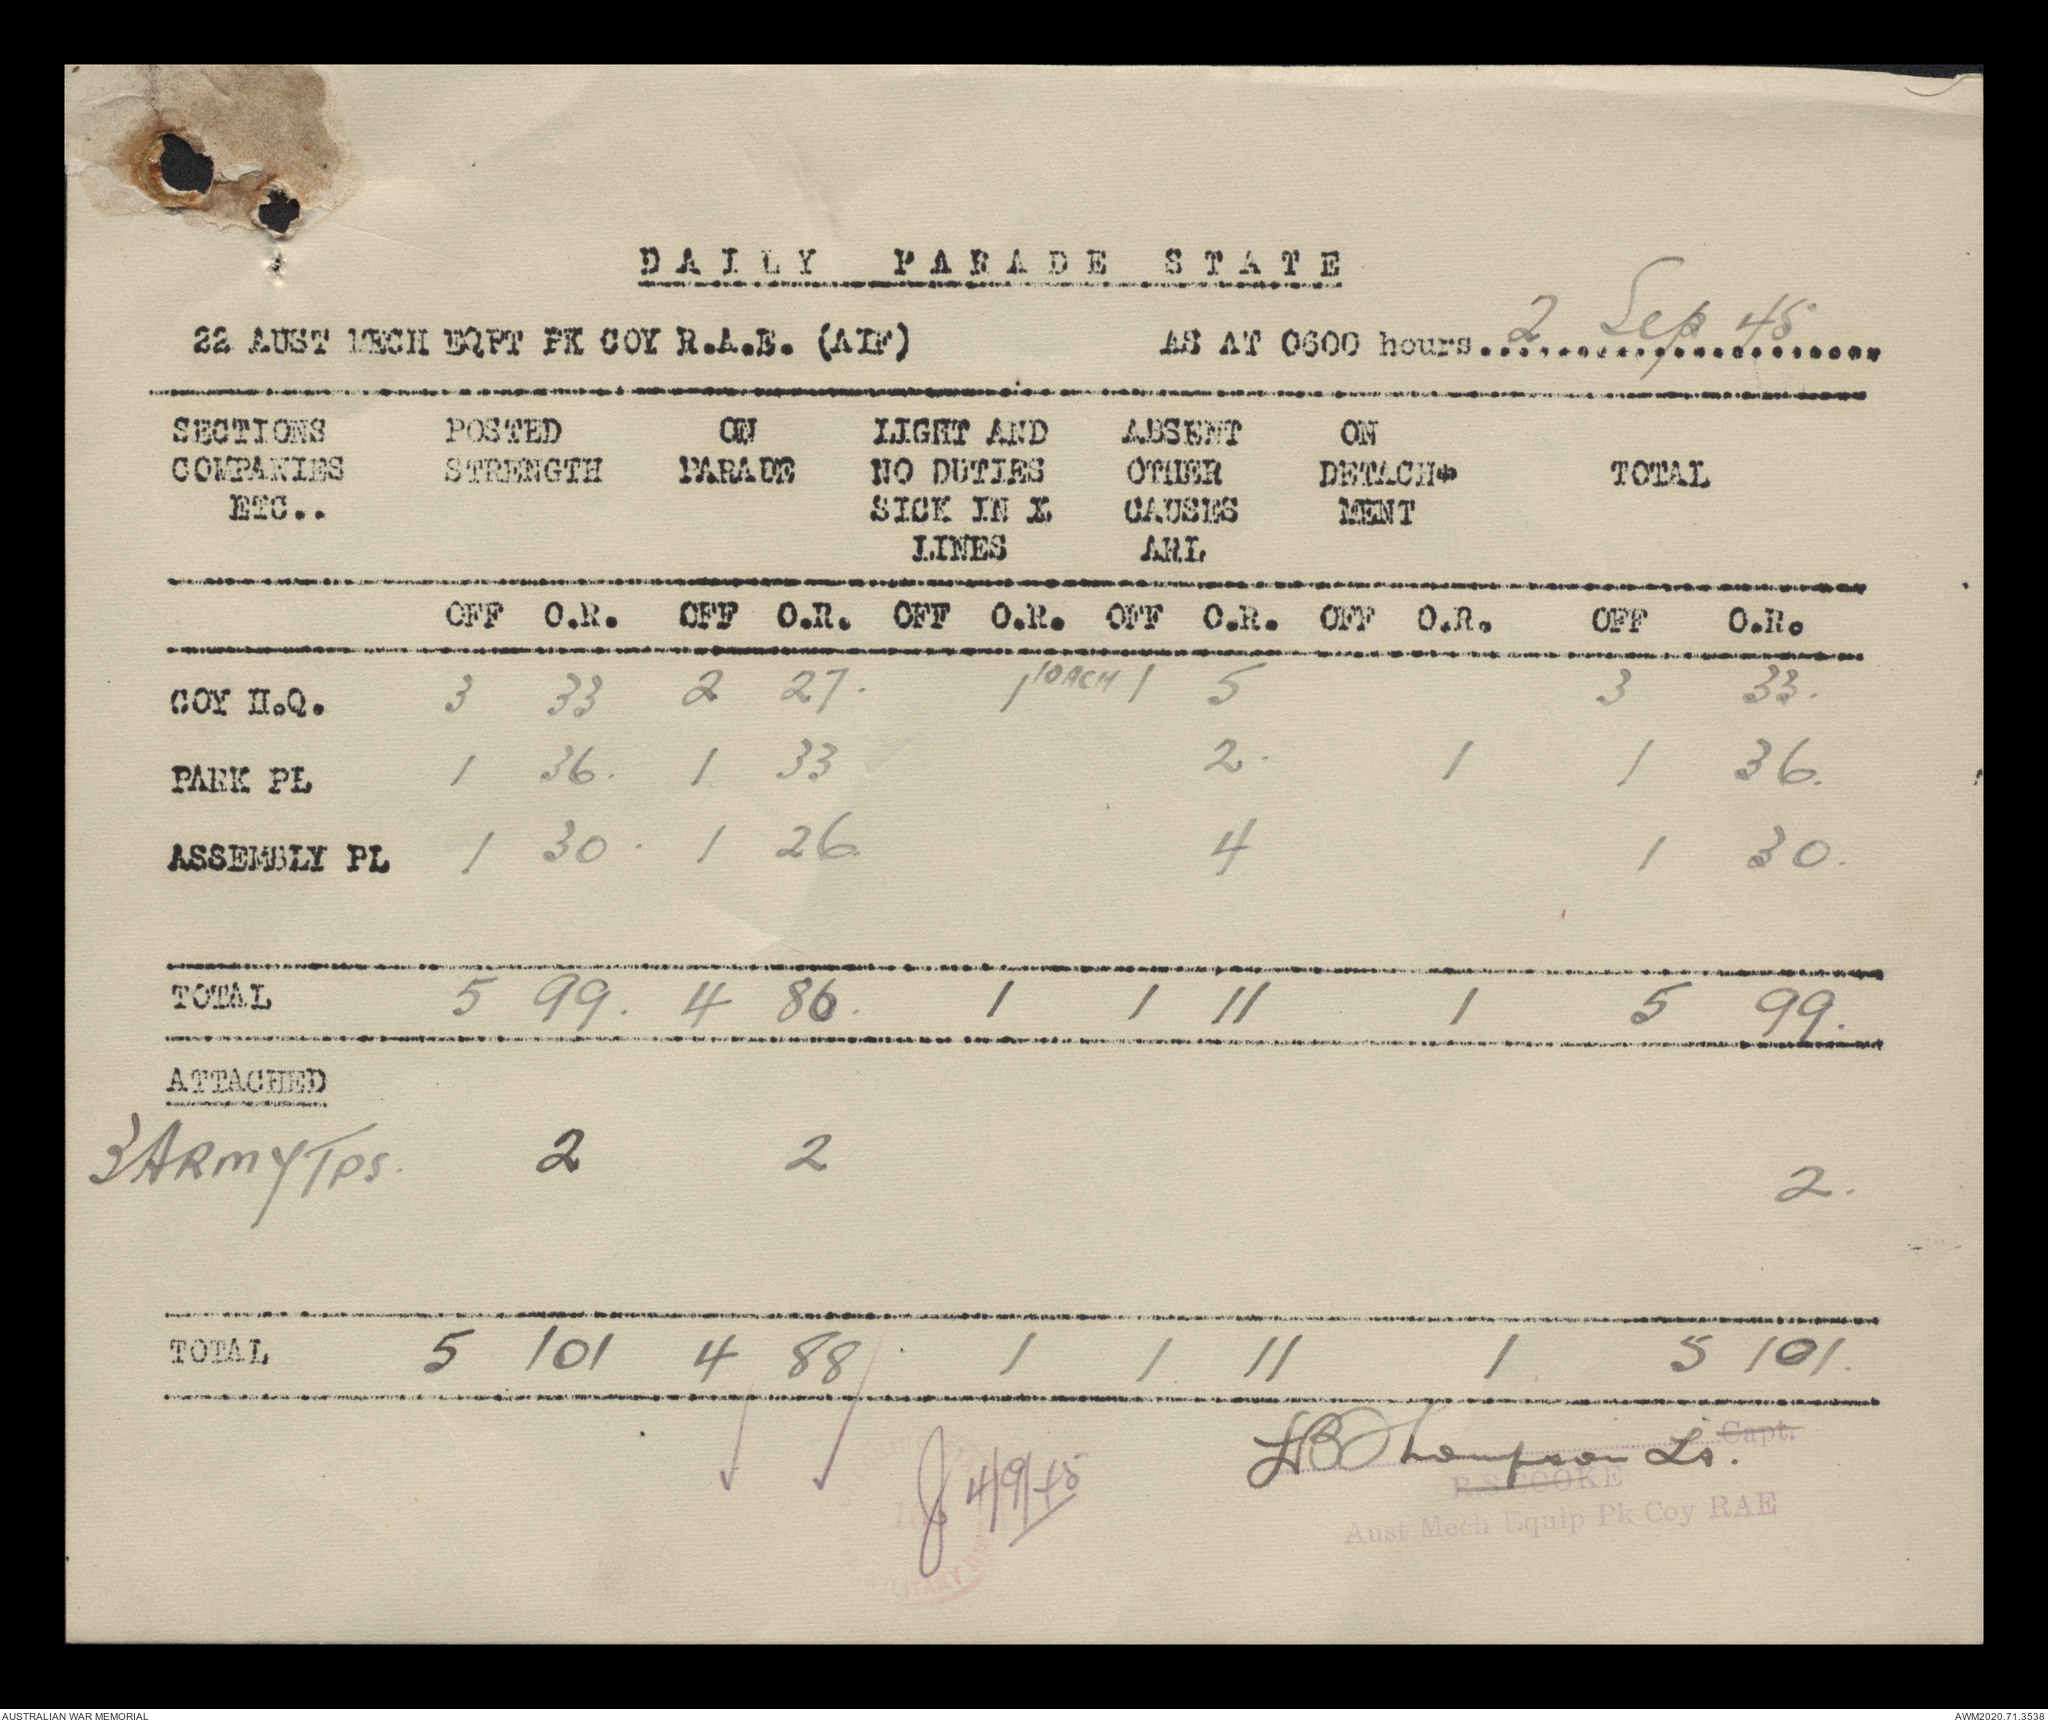 DAILY PARADE STATE
22 AUST MECH EQPT PK COY R.A.E. (AIF) AS AT 0600 hours 2 Sep 45
SECTIONS POSTED ON LIGHT AND ABSENT ON
COMPANIES STRENGTH PARADE NO DUTIES OTHER DETACH- TOTAL
ETC.. SICK IN X CAUSES MENT
LINES ARL
OFF O.R. OFF O.R. OFF O.R. OFF O.R. OFF O.R. OFF O.R.
COY H.Q. 3 33 2 27. 1 1 5 3 33.
PARK PL 1 36. 1 33 2. 1 1 36.
ASSEMBLY PL 1 30. 1 26. 4 1 30.
TOTAL 5 99. 4 86. 1 1 11 1 5 99.
ATTACHED
3 ARMY TPS. 2 2 2.
TOTAL 5 101 4 88 1 1 11 1 5 101.
Capt.
Thompson Lt.
4/9/45
R.S. COOKE
Aust Mech Equip Pk Coy RAE
MILITARY
AUSTRALIAN WAR MEMORIAL AWM2020.71.3538